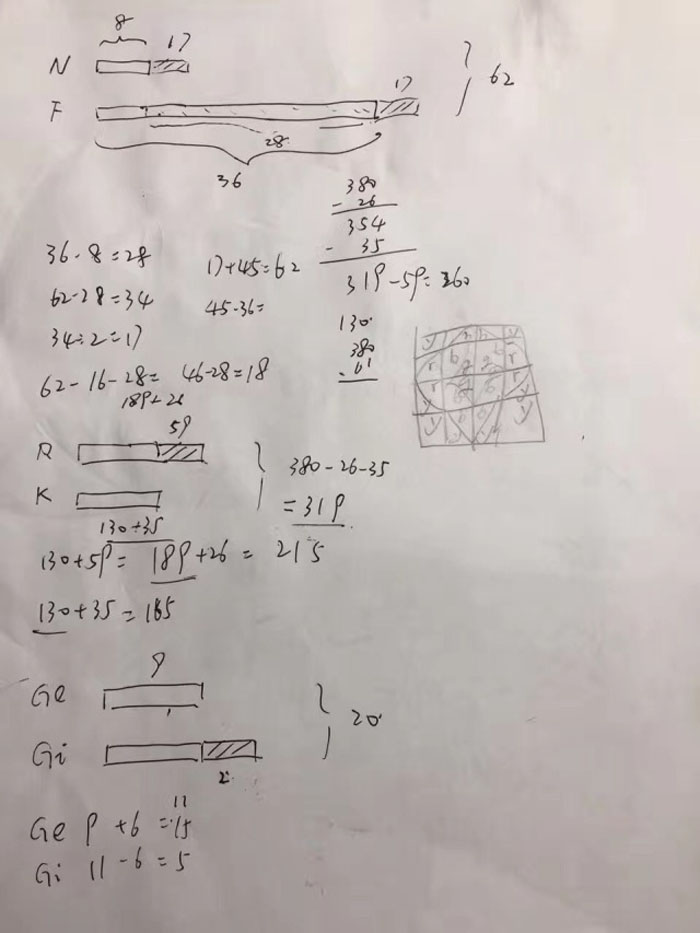 8
N 17
F 17
62
28
36
380
- 26
354
- 35
319-59=260
36-8=28
17+45=62
62-28=34
45-36=
34÷2=17
130
380
- 61
62-16-28= 46-28=18
189+26
R 59
K
380-26-35
=319
130+35
130+59= 189+26= 215
130+35=165
9
Ge
20
Gi
2
11
Ge 9+6=15
Gi 11-6=5